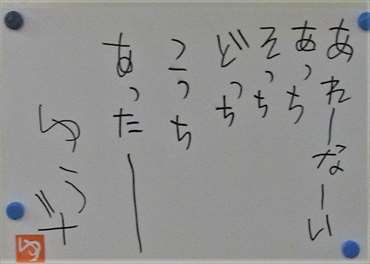 あれーなーい
あっち
そっち
どっち
こっち
あったー
ゆ